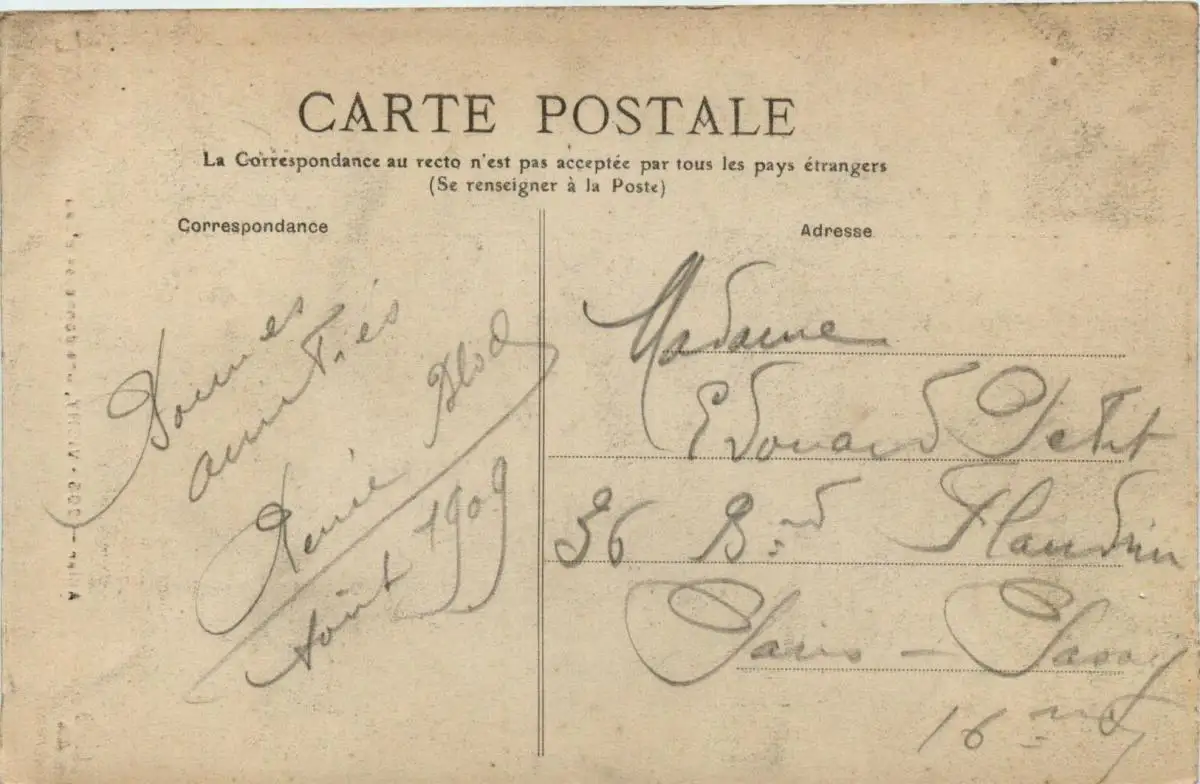 CARTE POSTALE
La Correspondance au recto n'est pas acceptée par tous les pays étrangers
(Se renseigner à la Poste)
Correspondance
Adresse
Bonnes
amitiés
Août 1909
Madame
Edouard Petit
36 Bard Flandrin
Paris - Passy
16me